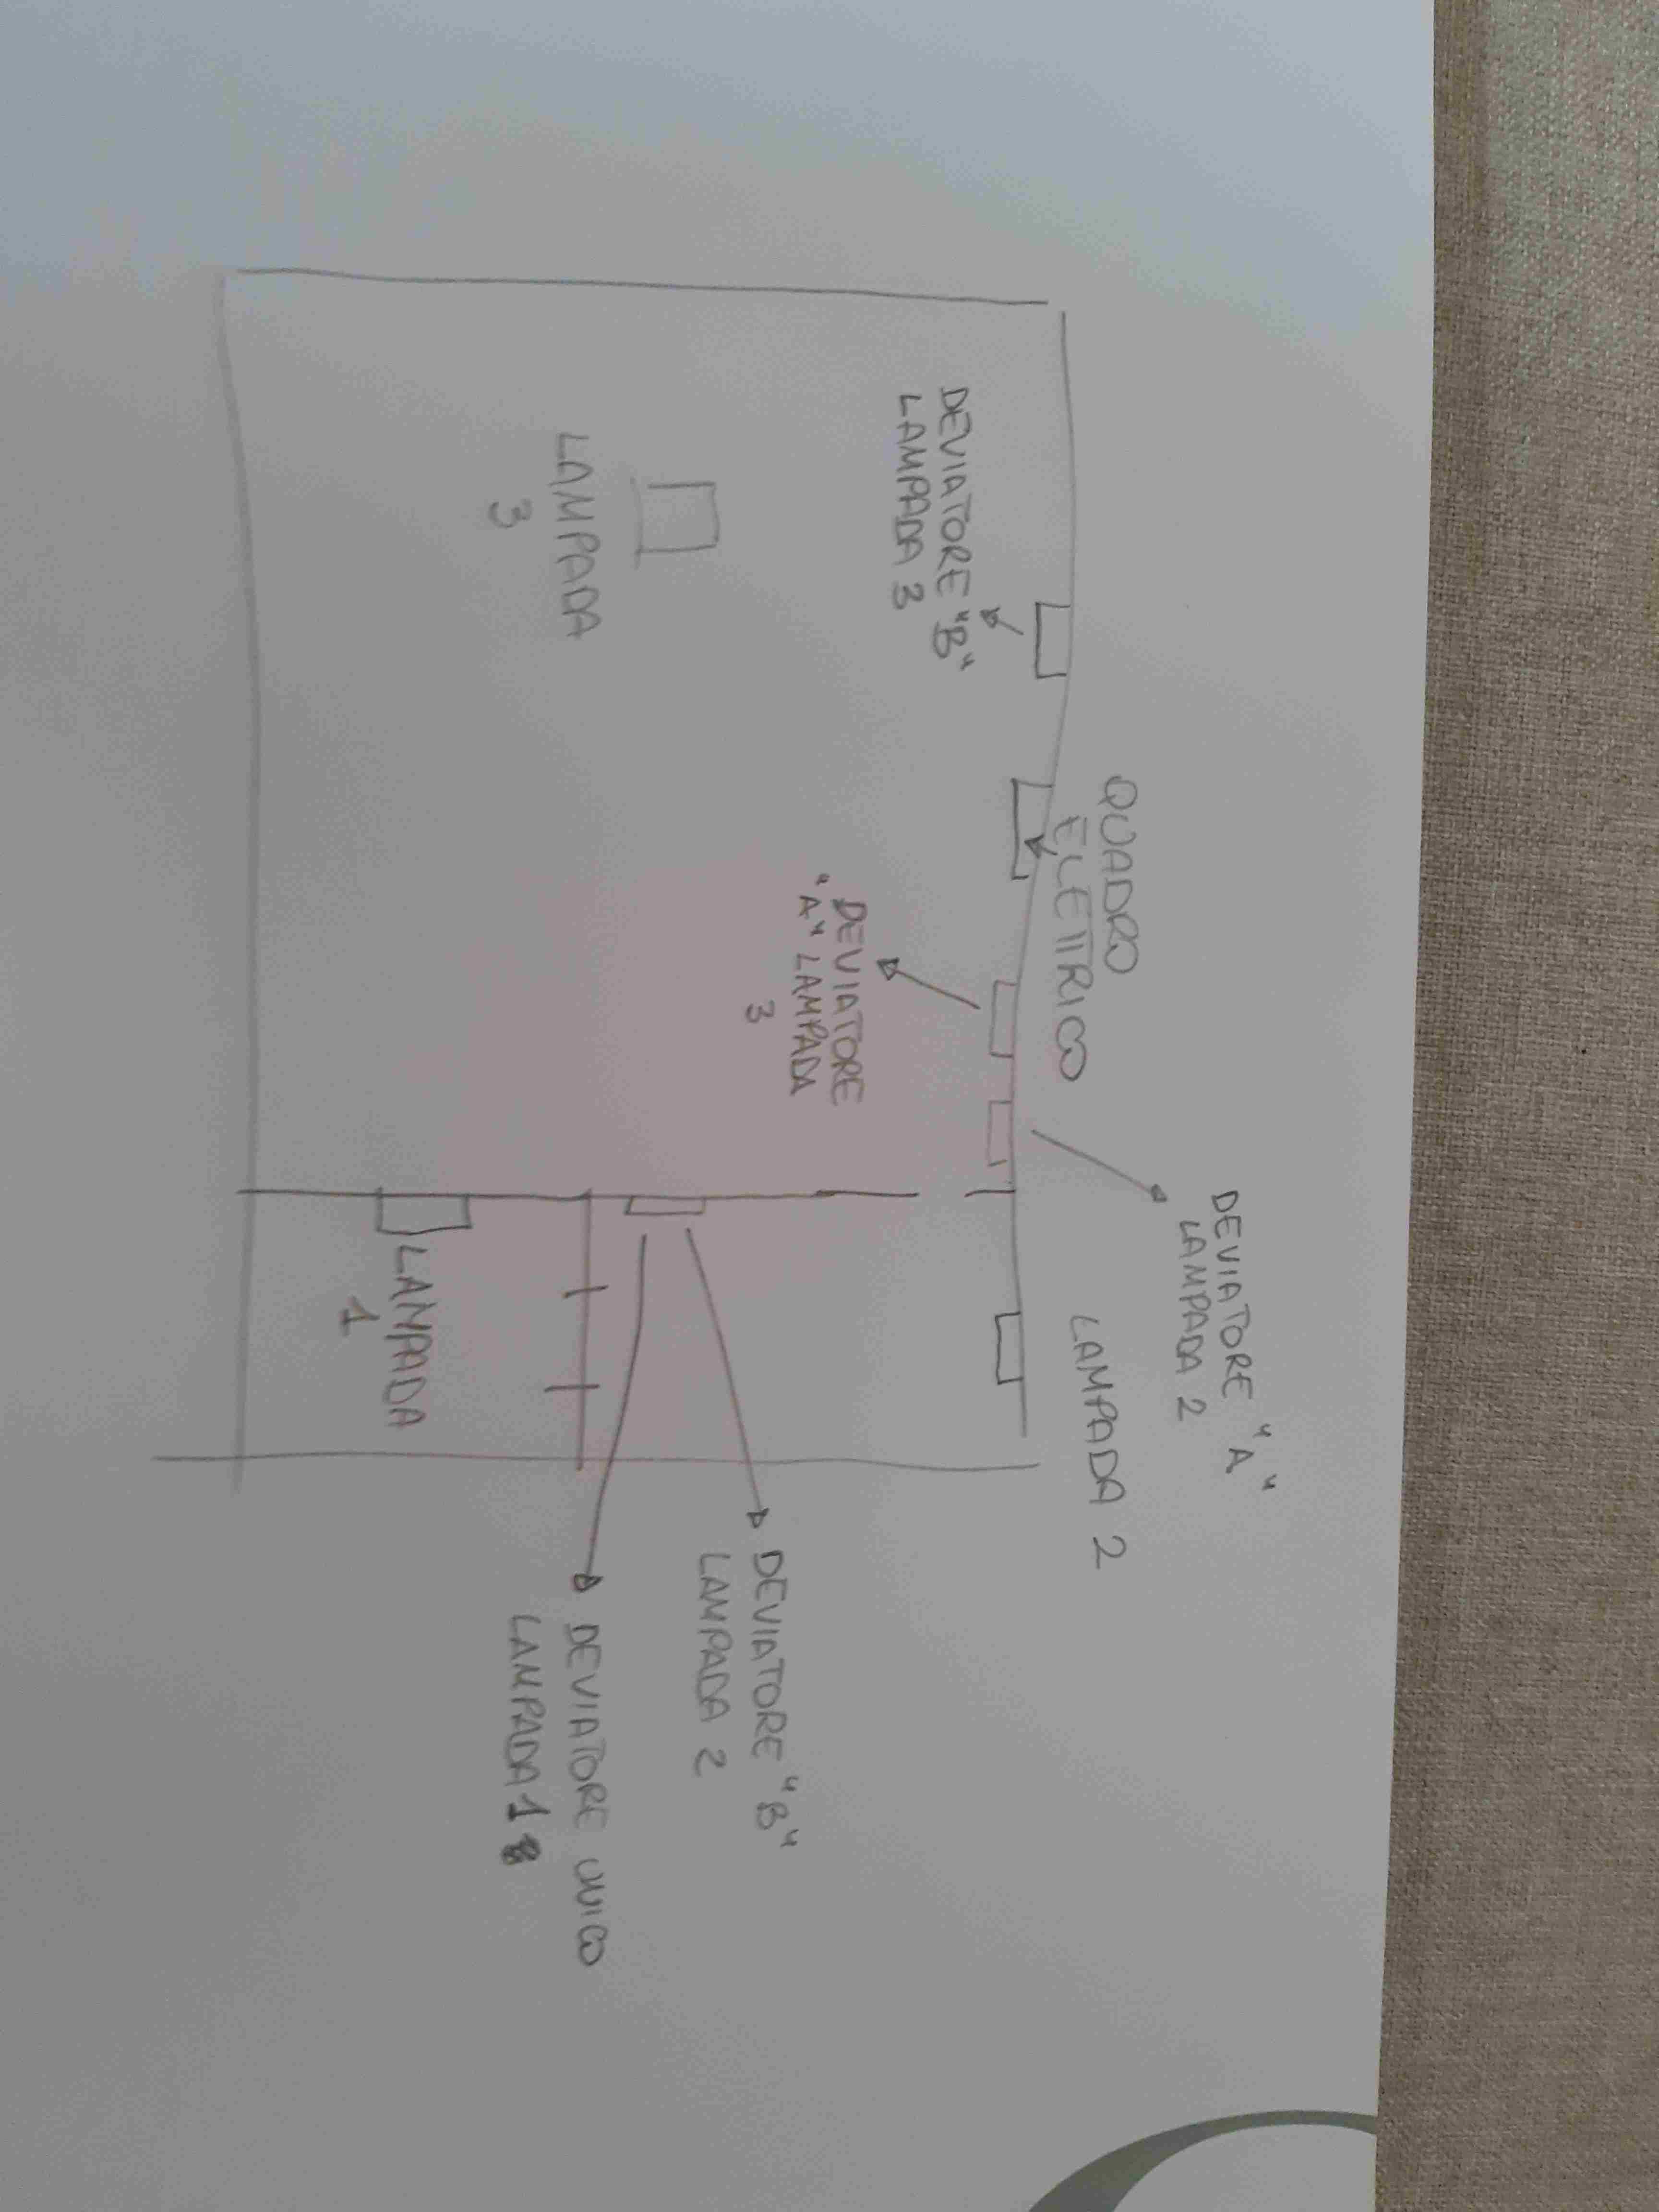 DEVIATORE "A"
LAMPADA 2
QUADRO
ELETTRICO
LAMPADA 2
DEVIATORE "B"
LAMPADA 3
DEVIATORE
"A" LAMPADA
3
LAMPADA
3
DEVIATORE "B"
LAMPADA 2
DEVIATORE UNICO
LAMPADA 1
LAMPADA
1